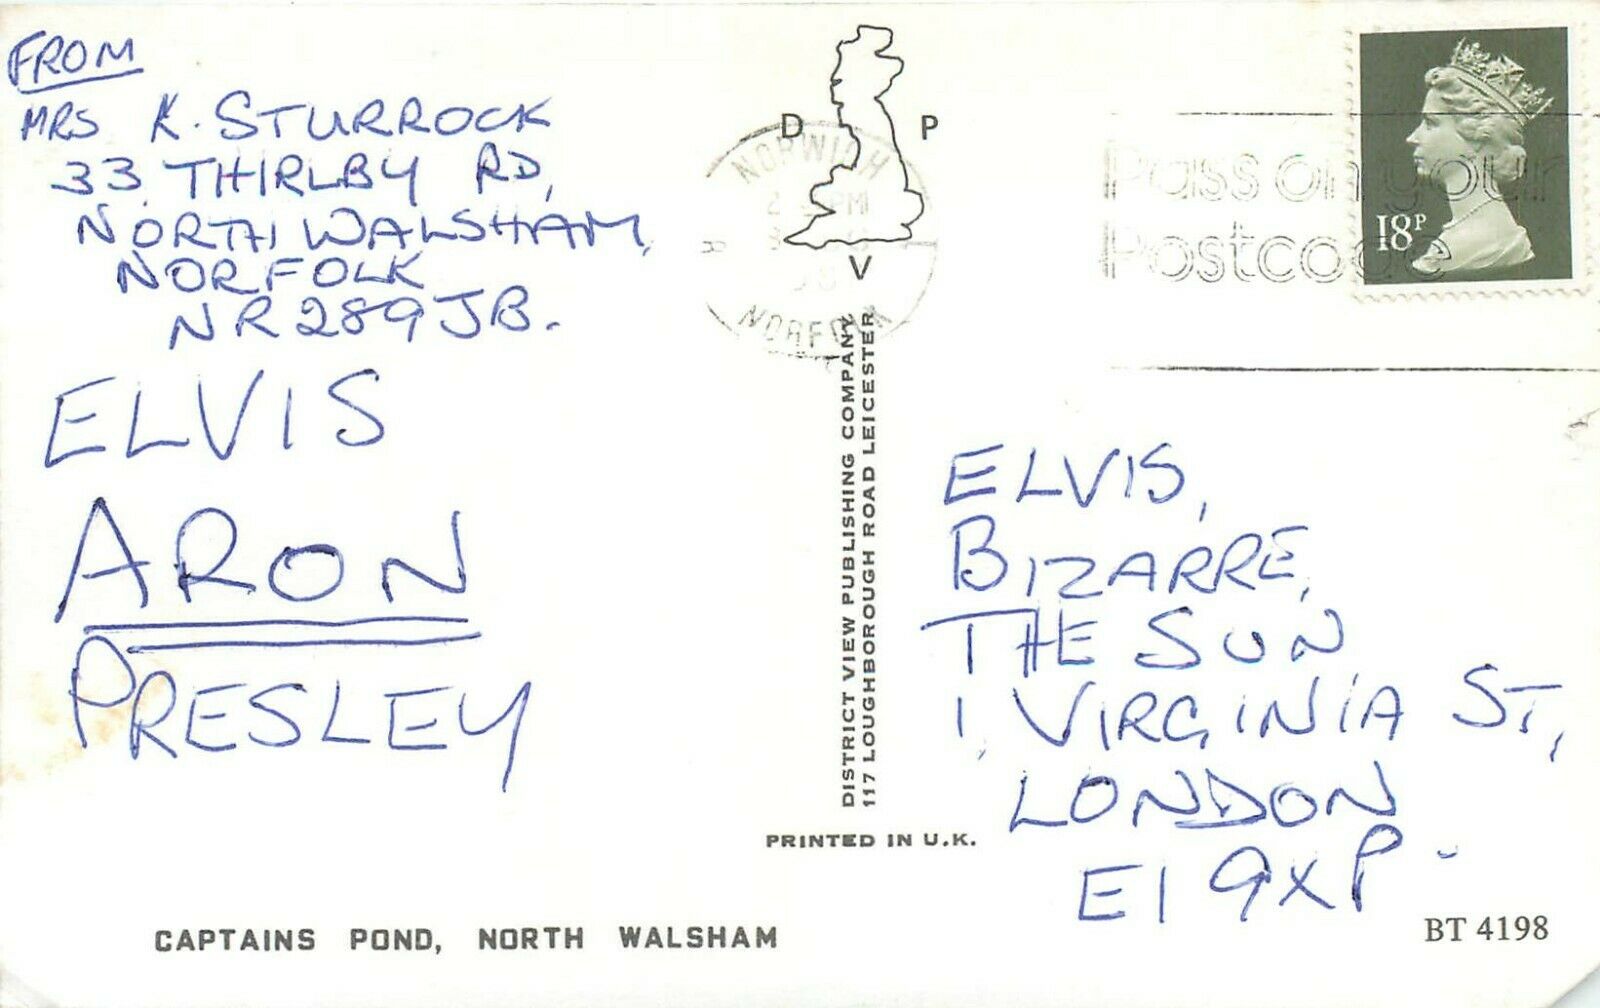 FROM
MRS K. STURROCK
33, THIRLBY RD,
NORTH WALSHAM,
NORFOLK
NR289JB.
ELVIS
ARON
PRESLEY
D P
V
NORWICH
PM
NORFOLK
Pass on your
Postcode
18P
DISTRICT VIEW PUBLISHING COMPANY
117 LOUGHBOROUGH ROAD LEICESTER
PRINTED IN U.K.
ELVIS,
BIZARRE,
THE SUN
1, VIRGINIA ST,
LONDON
E1 9XP
CAPTAINS POND, NORTH WALSHAM
BT 4198